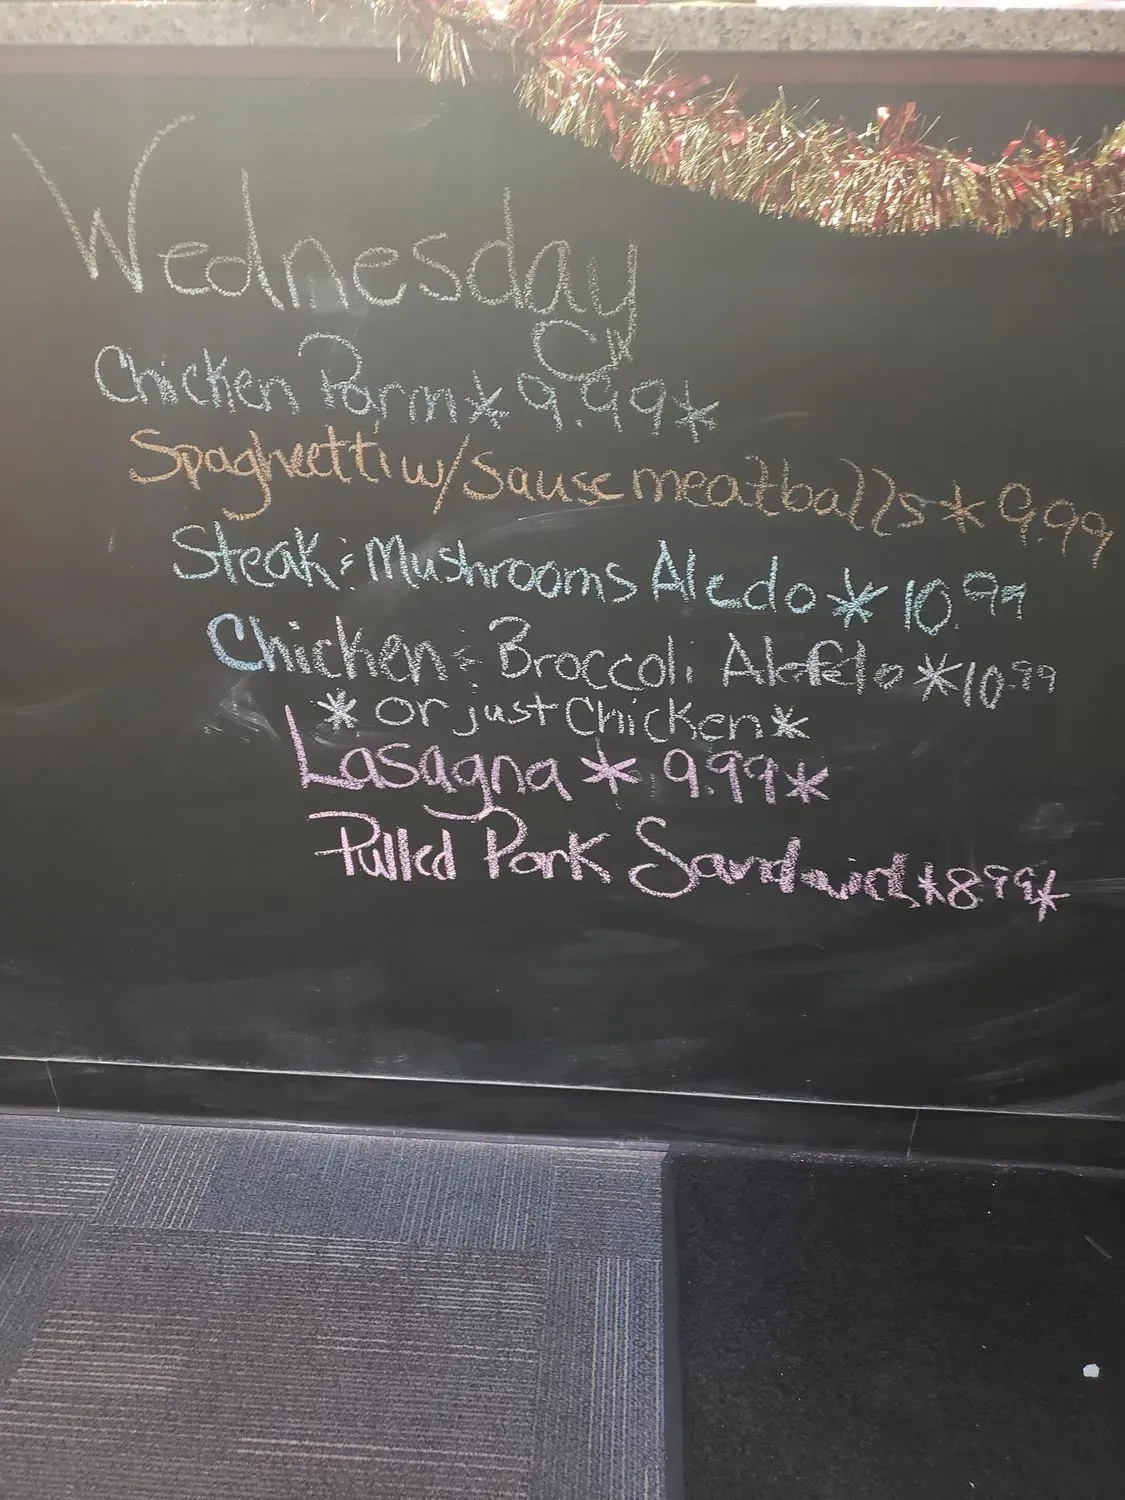 Wednesday
Chicken Parm * 9.99 *
Spaghetti w/ Sause meatballs * 9.99
Steak & Mushrooms Aledo * 10.99
Chicken & Broccoli Alefelo * 10.99
* or just Chicken *
Lasagna * 9.99 *
Pulled Pork Sandwich * 8.99 *